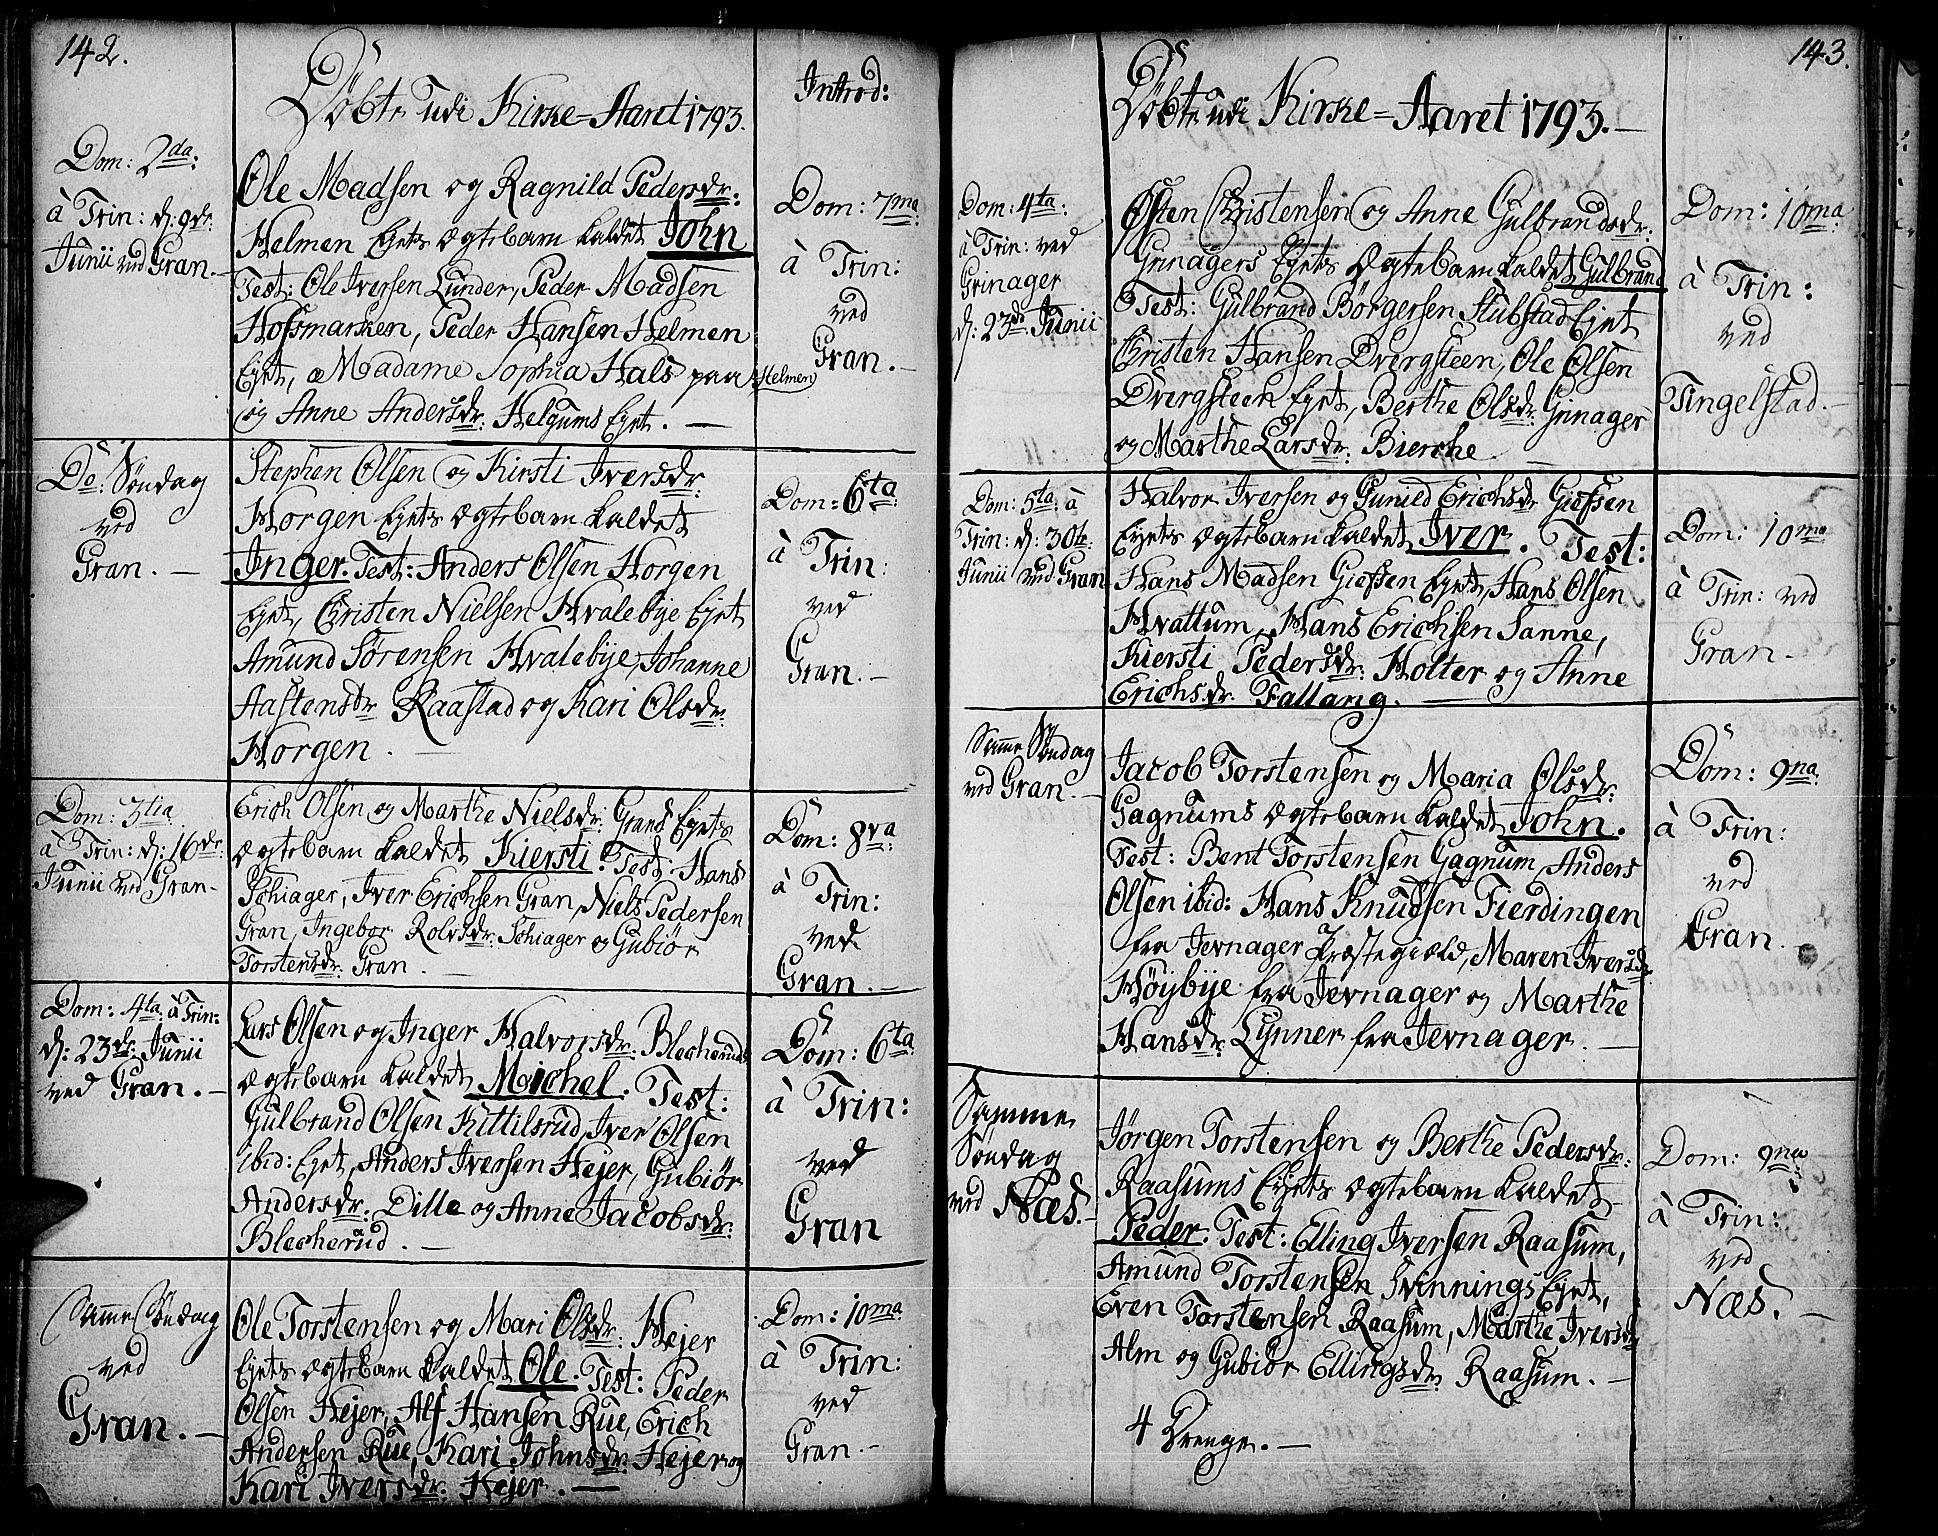 142.
Döbte udi Kirke=Aaret 1793.
Introd:
Dom: 2da:
à Trin: d: 9de
Junii ved Gran.
Ole Madsen og Ragnild Pedersdr:
Helmen Eyets Ægtebarn kaldet John
Test: Ole Iversen Lunder, Peder Madsen
Hofsmarken, Peder Hansen Helmen
Eyet, Madame Sophia Hals paa Helmen
og Anne Andersdr: Helgums Eyet. —
Dom: 7ma
à Trin:
ved
Gran. —
Do: Søndag
ved
Gran. —
Stephen Olsen og Kirsti Iversdr:
Horgen Eyets Ægtebarn kaldet
Inger. Test: Anders Olsen Horgen
Eyet, Christen Nielsen Hvalebye Eyet
Amund Sørensen Hvalebye, Johanne
Aastensdr Raastad og Kari Olsdr:
Horgen. —
Dom: 6ta
à Trin:
ved
Gran. —
Dom: 3tia
à Trin: d: 16de:
Junii ved Gran.
Erich Olsen og Marthe Nielsdr: Grans Eyets
Ægtebarn kaldet Kiersti. Test: Hans
Schiager, Iver Erichsen Gran, Niels Pedersen
Gran, Ingebor Rolvsdr: Schiager og Gubiør
Torstensdr: Gran. —
Dom: 8va
à Trin:
ved
Gran. —
Dom: 4ta à Trin:
d: 23de: Junii
ved Gran. —
Lars Olsen og Inger Halvorsdr: Blecheruds
Ægtebarn kaldet Michel. Test:
Gulbrand Olsen Kittilsrud, Iver Olsen
ibid: Eyet, Anders Iversen Hejer, Gubiør
Andersdr: Dille og Anne Jacobsdr:
Blecherud. —
Dom: 6ta
à Trin:
ved
Gran
Samme Søndag
ved
Gran. —
Ole Torstensen og Mari Olsdr: Hejer
Eyets Ægtebarn kaldet Ole. Test: Peder
Olsen Hejer, Alf Hansen Rue, Erich
Andersen Rue, Kari Johnsdr: Hejer og
Kari Iversdr: Hejer. —
Dom: 10ma
à Trin:
ved
Gran. —
143.
Döbte udi Kirke=Aaret 1793. —
Dom: 4ta:
à Trin: ved
Grinager
d: 23de Junii
Østen Christensen og Anne Gulbrandsdr:
Grinagers Eyets Ægtebarn kaldet Gulbrand
Test: Gulbrand Börgersen Stubstad Eyet
Christen Hansen Dvergsteen, Ole Olsen
Dvergsteen Eyet, Berthe Olsdr: Grinager
og Marthe Larsdr: Bierche
Dom: 10ma
à Trin:
ved
Tingelstad. —
Dom: 5ta: à
Trin: d: 30te:
Junii ved Gran
Halvor Iversen og Gunild Erichsdr Giefsen
Eyets Ægtebarn kaldet Iver. Test:
Hans Madsen Giefsen Eyet, Hans Olsen
Hvattum, Hans Erichsen Sanne,
Kiersti Pedersdr: Holter og Anne
Erichsdr: Fallang. —
Dom: 10ma
à Trin: ved
Gran. —
Samme Søndag
ved Gran. —
Jacob Torstensen og Maria Olsdr:
Gagnums Ægtebarn kaldet John.
Test: Bent Torstensen Gagnum, Anders
Olsen ibid: Hans Knudsen Fierdingen
fra Jevnager Præstegiæld, Maren Iversdr
Høybye fra Jevnager og Marthe
Hansdr: Lynner fra Jevnager. —
Dom: 9na
à Trin:
ved
Gran. —
Samme
Søndag
ved Næs. —
Jørgen Torstensen og Berthe Pedersdr:
Raasums Eyets Ægtebarn kaldet
Peder. Test: Elling Iversen Raasum,
Amund Torstensen Tvinnings Eyet,
Even Torstensen Raasum, Marthe Iversdr
Alm og Gubiør Ellingsdr: Raasum. —
4
Drenge. —
Dom: 9na
à Trin:
ved
Næs. —